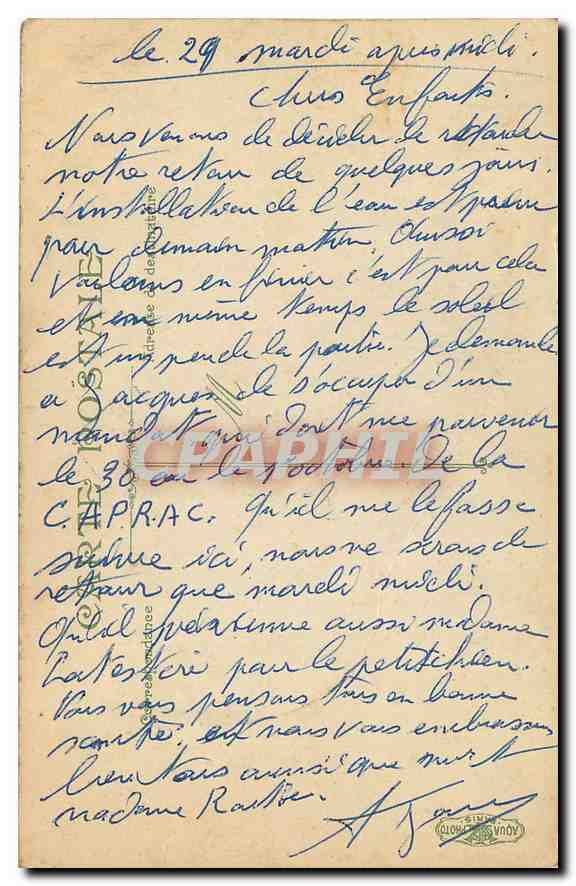 le 29 mardi après midi.
Chers Enfants.
Nous venons de décider de retarder
notre retour de quelques jours.
L'installation de l'eau est prévue
pour demain matin,
en février c'est pour cela
et en même temps le soleil
est un peu de la partie. Je demande
a Jacques de s'occuper d'un
mandat qui doit me parvenir
le 30 ou le 1 octobre de la
C.A.P.R.A.C. qu'il me le fasse
suivre ici, nous ne serons de
retour que mardi midi.
Qu'il prévienne aussi madame
pour le petit chien.
Nous vous pensons tous en bonne
santé, et nous vous embrassons
bien tous aussi que
madame
CARTE POSTALE
Correspondance
Adresse du destinataire
CPAPHIL
AQUA PHOTO
PARIS